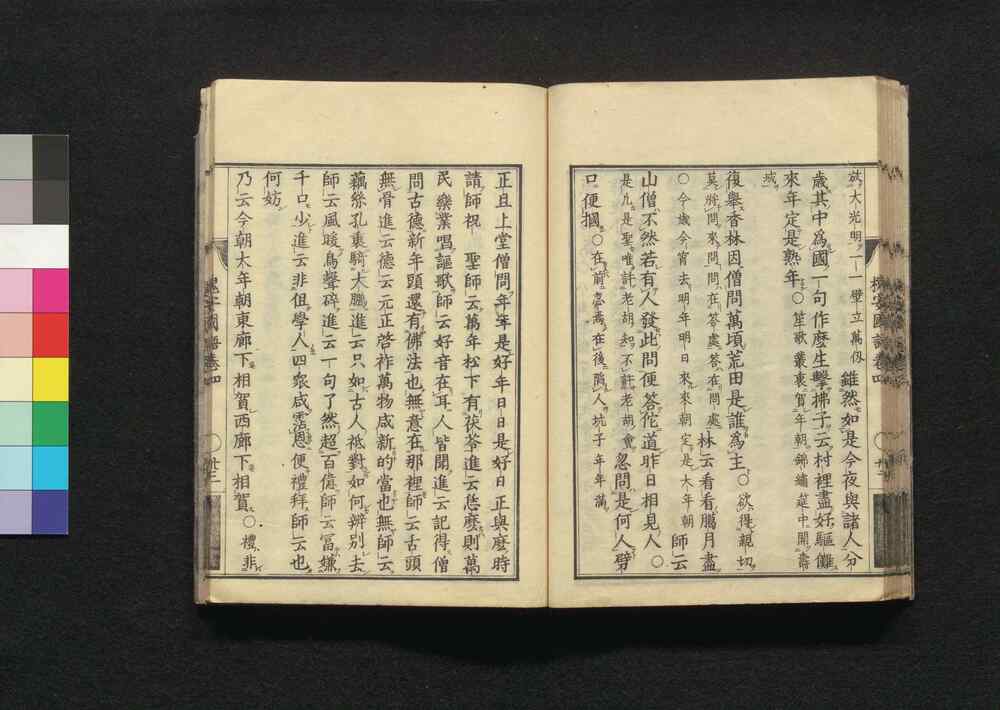 放大光明一一壁立萬仭 雖然如是今夜與諸人分
歲其中爲國一句作麼生擊拂子云村裡盡好驅儺
來年定是熟年○笙歌叢裏賀年朝錦繡莚中開壽
域
復擧香林因僧問萬頃荒田是誰爲主○欲得親切
莫將問來問問在答處答在問處 林云看看臘月盡
○今歲今宵去明年明日來來朝定是大年朝 師云
山僧不然若有人發此問便答佗道昨日相見人○
是凡是聖唯許老胡知不許老胡會 忽問是何人劈
口便摑○在前在後人坑子年年滿
正旦上堂僧問年年是好年日日是好日正與麼時
請師祝 聖師云萬年松下有茯苓進云恁麼則萬
民樂業唱謳歌師云好音在耳人皆聞進云記得僧
問古德新年頭還有佛法也無意在那裡師云舌頭
無骨進云德云元正啓祚萬物咸新的當也無師云
藕絲孔裏騎大鵬進云只如古人祗對如何辨別去
師云風暖鳥聲碎進云一句了然超百億師云冨嫌
千口少進云非但學人四衆咸霑恩便禮拜師云也
何妨
乃云今朝大年朝東廊下相賀西廊下相賀○禮非
槐安國語卷四 ○ 卅二
槐安國語卷四 ○ 卅三